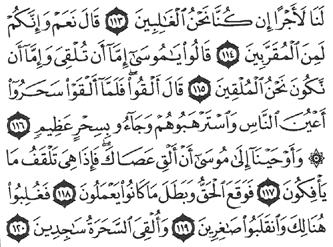 لَنَا لَأَجْرًا إِن كُنَّا نَحْنُ ٱلْغَٰلِبِينَ ١١٣ قَالَ نَعَمْ وَإِنَّكُمْ
لَمِنَ ٱلْمُقَرَّبِينَ ١١٤ قَالُوا۟ يَٰمُوسَىٰٓ إِمَّآ أَن تُلْقِىَ وَإِمَّآ أَن
نَّكُونَ نَحْنُ ٱلْمُلْقِينَ ١١٥ قَالَ أَلْقُوا۟ ۖ فَلَمَّآ أَلْقَوْا۟ سَحَرُوٓا۟
أَعْيُنَ ٱلنَّاسِ وَٱسْتَرْهَبُوهُمْ وَجَآءُو بِسِحْرٍ عَظِيمٍ ١١٦
۞ وَأَوْحَيْنَآ إِلَىٰ مُوسَىٰٓ أَنْ أَلْقِ عَصَاكَ ۖ فَإِذَا هِىَ تَلْقَفُ مَا
يَأْفِكُونَ ١١٧ فَوَقَعَ ٱلْحَقُّ وَبَطَلَ مَا كَانُوا۟ يَعْمَلُونَ ١١٨ فَغُلِبُوا۟
هُنَالِكَ وَٱنقَلَبُوا۟ صَٰغِرِينَ ١١٩ وَأُلْقِىَ ٱلسَّحَرَةُ سَٰجِدِينَ ١٢٠